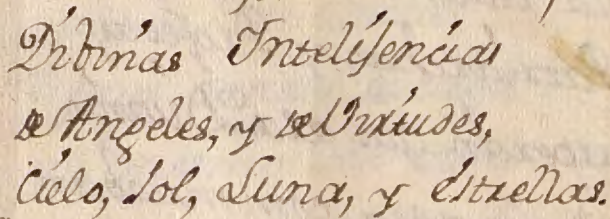 Dibinas Intelijencias
de Angeles, y de Virtudes,
Cielo, Sol, Luna, y estrellas.